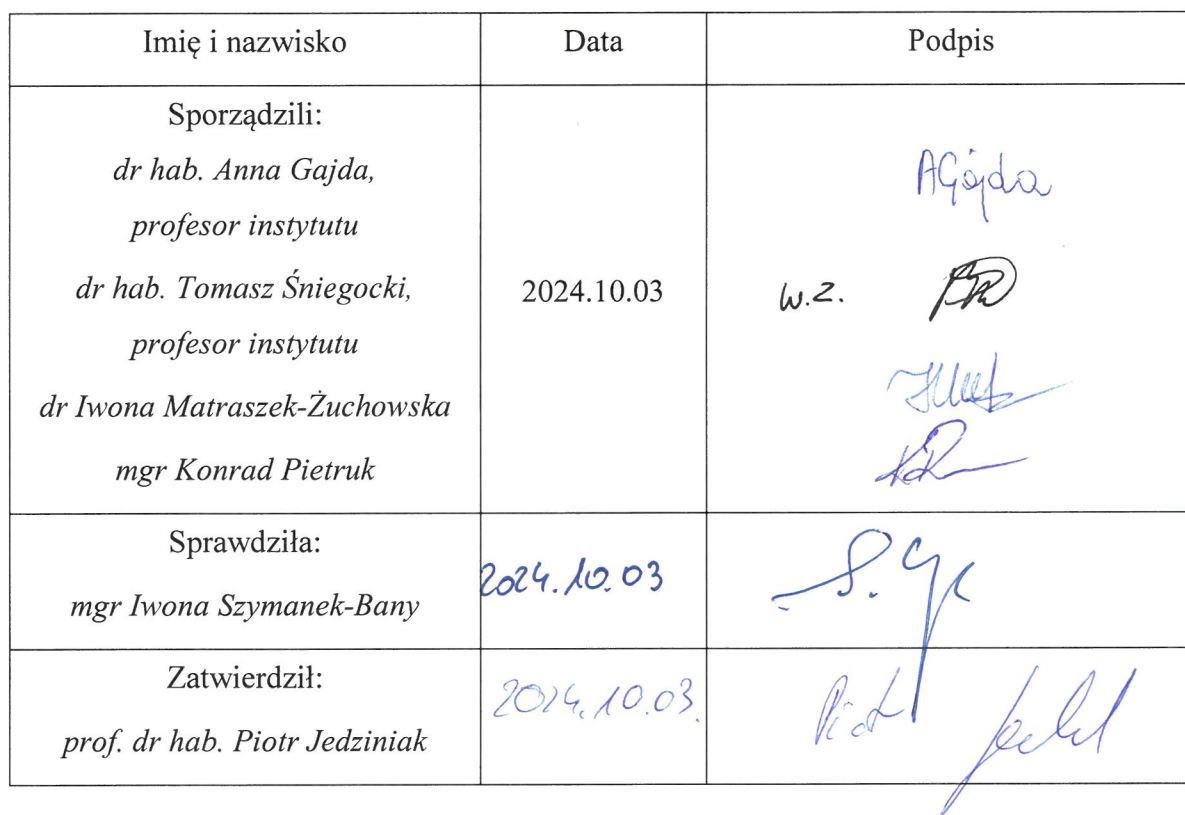 Imię i nazwisko Data Podpis
Sporządzili:
dr hab. Anna Gajda,
profesor instytutu
AGajda
dr hab. Tomasz Śniegocki,
profesor instytutu
2024.10.03
w.z.
dr Iwona Matraszek-Żuchowska
mgr Konrad Pietruk
Sprawdziła:
mgr Iwona Szymanek-Bany
2024.10.03
Zatwierdził:
prof. dr hab. Piotr Jedziniak
2024.10.03.
Piotr